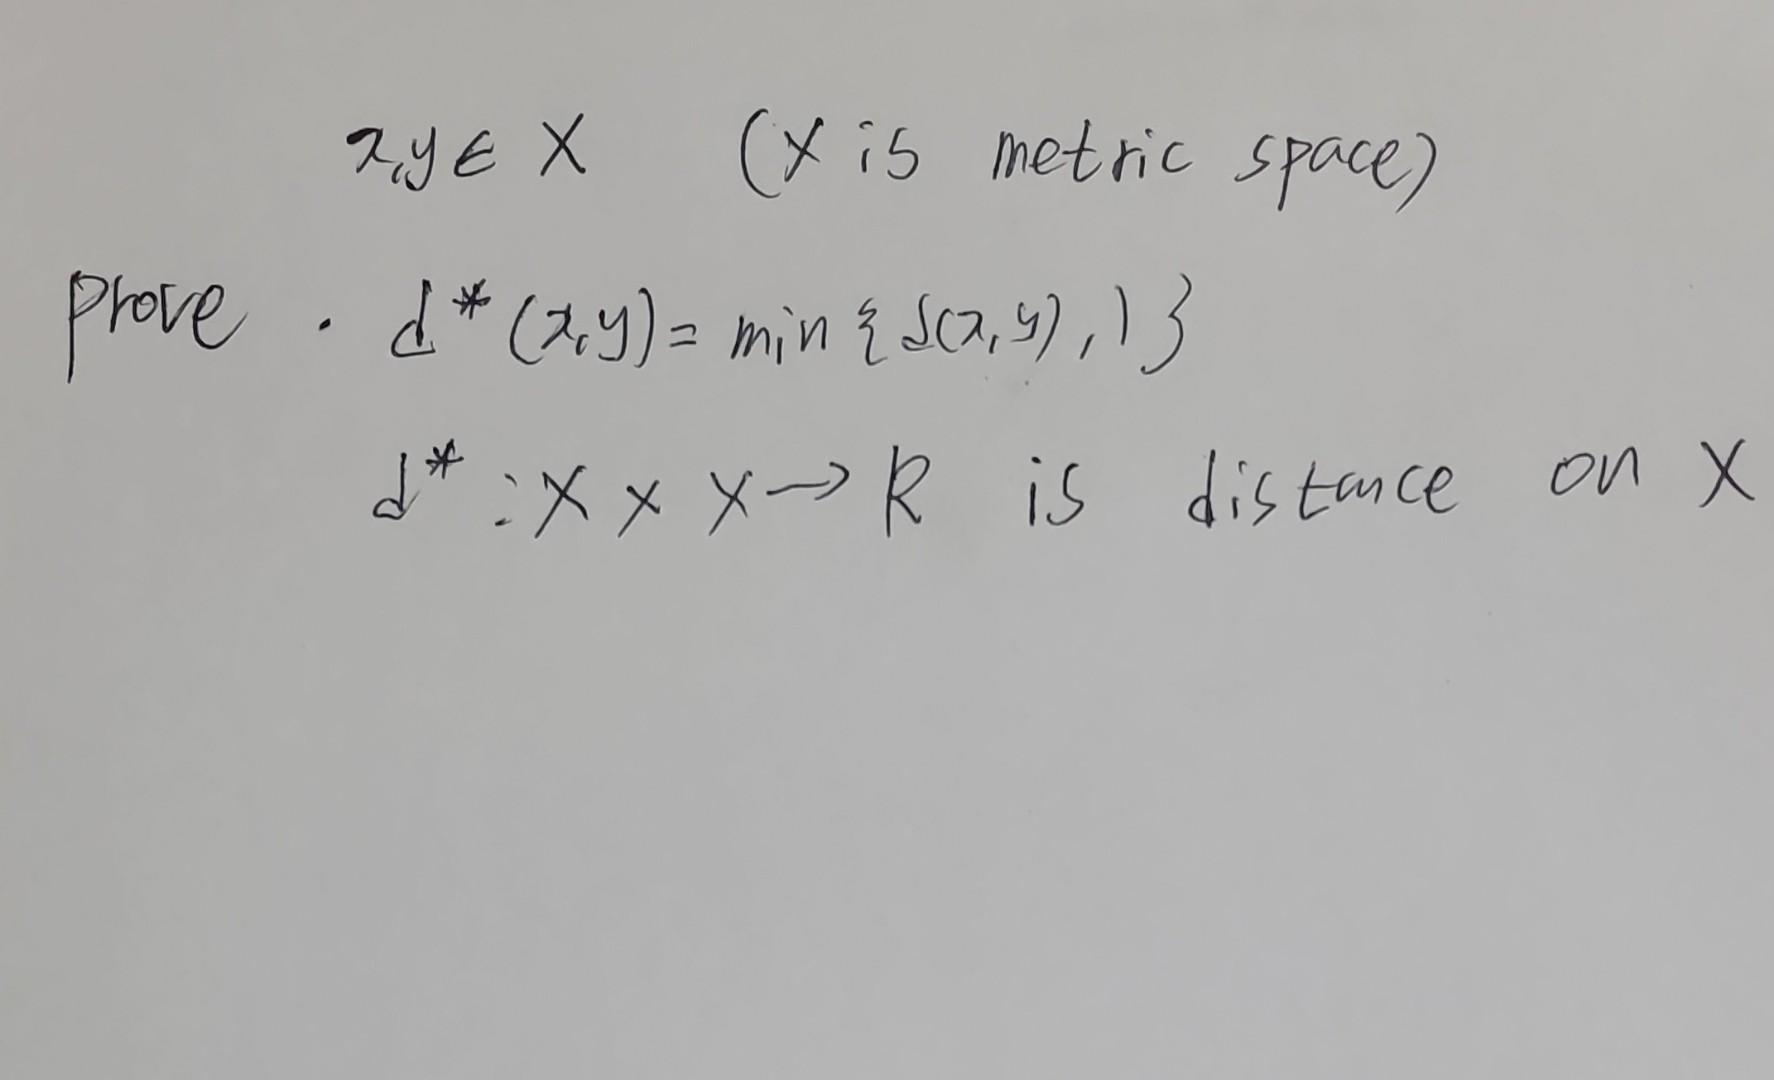 x,y∈ X (X is metric space)
prove . d*(x,y)= min {d(x,y),1}
d* : X x X → R is distance on X